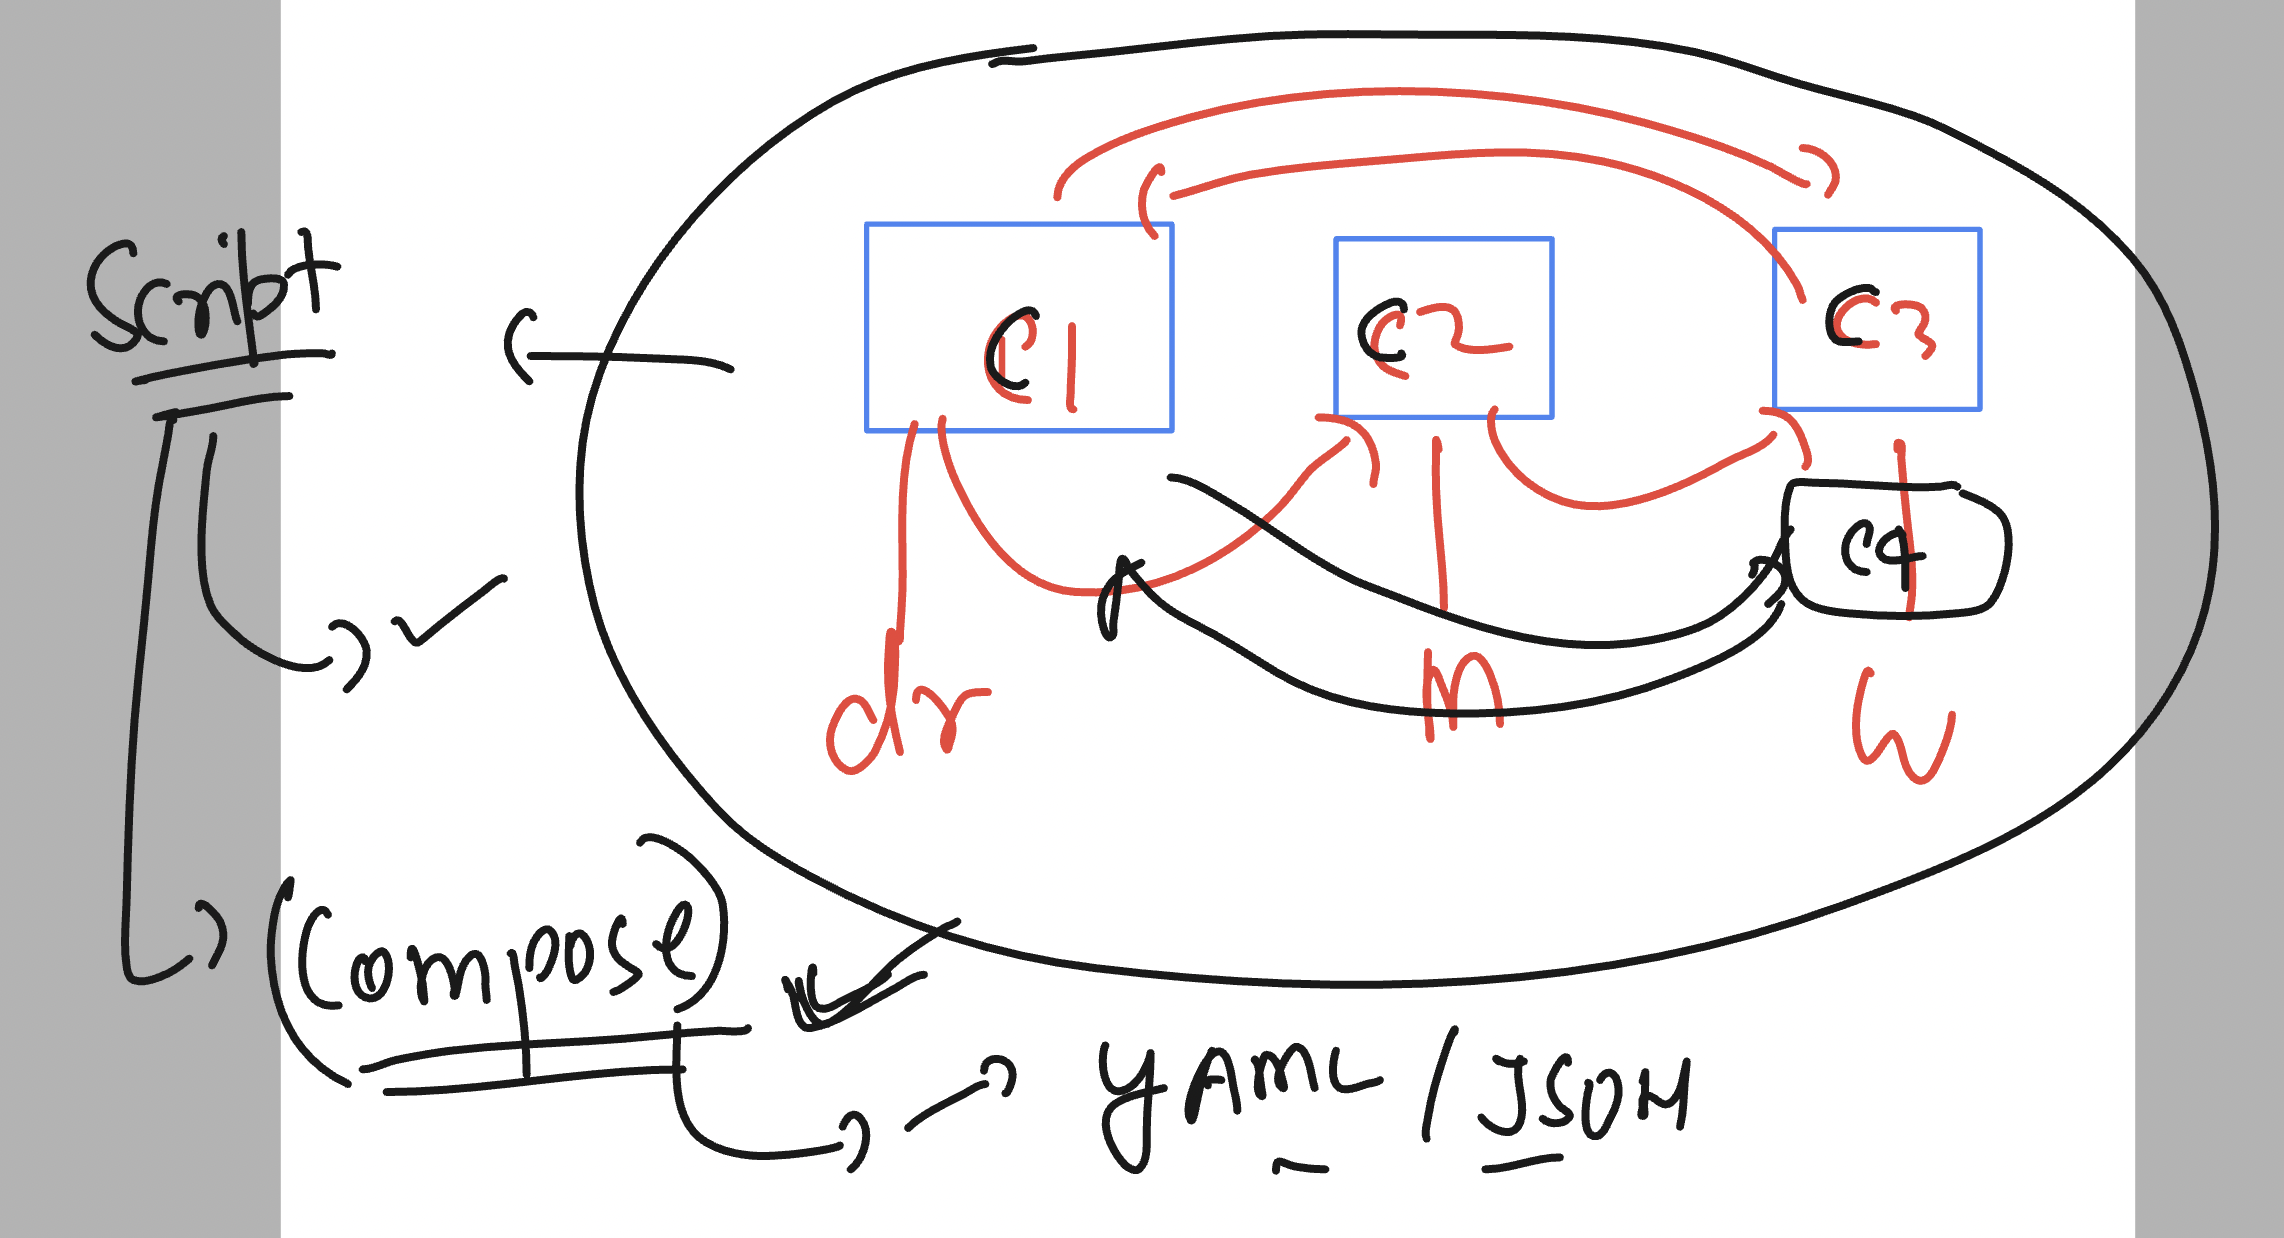 Script
C1
C2
C3
C4
dr
m
W
(Compose)
YAML / JSON